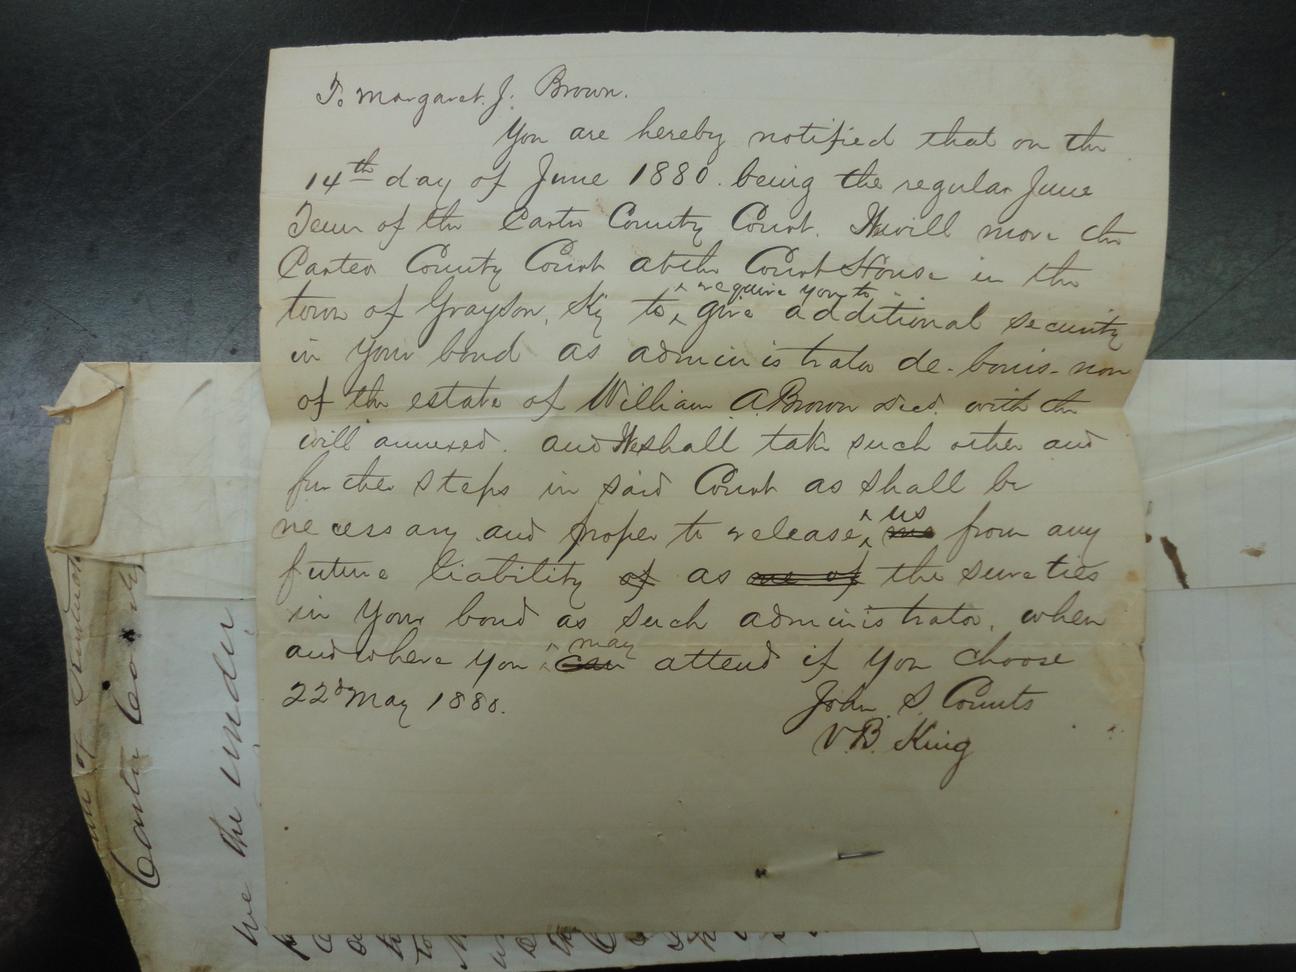 To Margaret. J. Brown.
You are hereby notified that on the
14th day of June 1880. being the regular June
Term of the Carter County Court. We will move the
Carter County Court at the Court House in the
town of Grayson, Ky to ^ require you to give additional security
in your bond as administrator de-bonis-non
of the estate of William A. Brown decd. with the
will annexed. and We shall take such other and
further steps in said Court as shall be
necessary and proper to release ^ us me from any
future liability of as one of the sureties
in your bond as such administrator, when
and where you ^ may can attend if you choose
22d May 1880.
John. S. Counts
V. B. King
Carter County
We the under